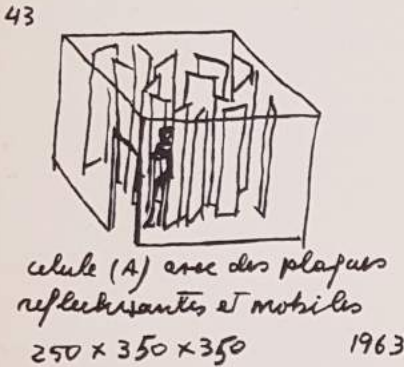 43
celule (A) avec des plaques
reflechissantes et mobiles
250 x 350 x 350 1963